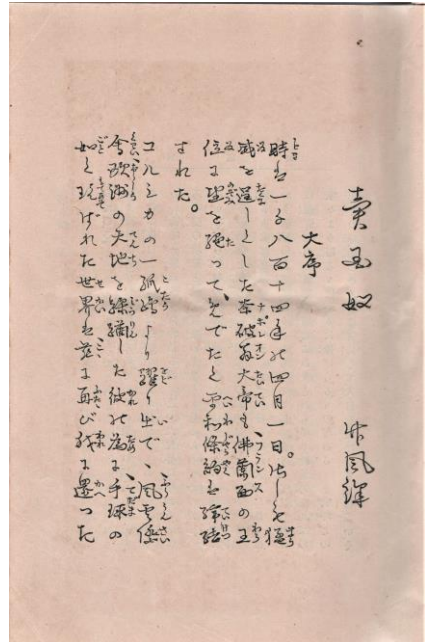 賣国奴
竹風譯
大序
時は一千八百十四年の四月一日。さしも猛
威を逞しくした奈破翁大帝も佛蘭西の王
位に望を絶つて、めでたく平和條約は締結
された。
コルシカの一孤島より躍り出で、風雲際
會歐洲の天地を蹂躙した彼の為に手球の
如く玩ばれた世界は茲に再び我に還つた